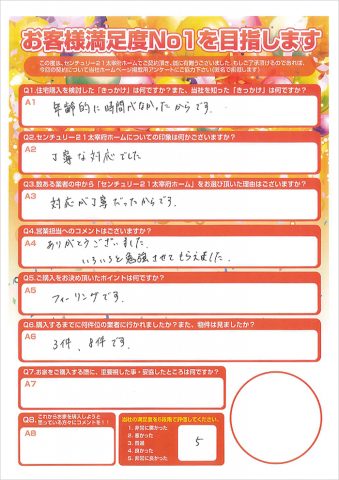 お客様満足度No1を目指します
この度は、センチュリー21太宰府ホームでご契約頂き、誠に有難うございました。もしご了承頂けるのであれば、
今回の契約について当社ホームページ掲載用アンケートにご協力下さい(匿名で掲載します)
Q1.住宅購入を検討した「きっかけ」は何ですか?また、当社を知った「きっかけ」は何ですか?
A1
年齢的に時間がなかったからです.
Q2.センチュリー21太宰府ホームについての印象は何かございますか?
A2
丁寧な対応でした
Q3.数ある業者の中から「センチュリー21太宰府ホーム」をお選び頂いた理由はございますか?
A3
対応が丁寧だったからです.
Q4.営業担当へのコメントはございますか?
A4
ありがとうございました.
いろいろと勉強させてもらえました.
Q5.ご購入をお決め頂いたポイントは何ですか?
A5
フィーリングです.
Q6.購入するまでに何件位の業者に行かれましたか?また、物件は見ましたか?
A6
3件、8件です.
Q7.お家をご購入する際に、重要視した事・妥協したところは何ですか?
A7
Q8.
これからお家を購入しようと
思っている方々にコメントを!!
A8
当社の満足度を5段階で評価してください。
1. 非常に悪かった
2. 悪かった
3. 普通
4. 良かった
5. 非常に良かった
5